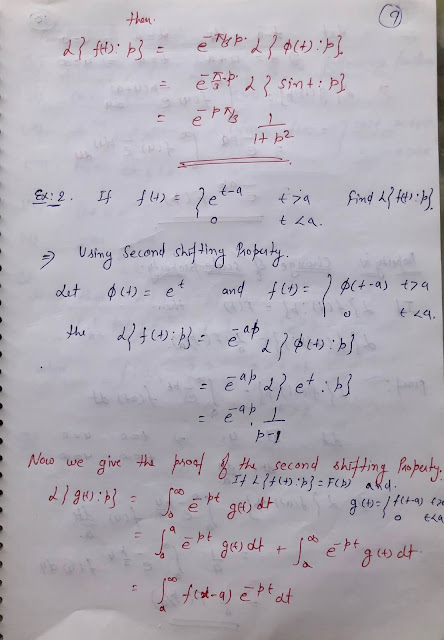 9
then.
L{f(t): p} = e^{-π/3 p} L{φ(t): p}
= e^{-π/3 · p} L{sin t: p}
= e^{-p π/3} 1/(1+p²)
Ex: 2. If f(t) = { e^{t-a} t>a Find L{f(t): p}
0 t<a.
⇒ Using Second shifting Property.
Let φ(t) = e^t and f(t) = { φ(t-a) t>a
0 t<a.
the L{f(t): p} = e^{-ap} L{φ(t): p}
= e^{-ap} L{e^t : p}
= e^{-ap} · 1/(p-1)
Now we give the proof of the second shifting Property.
If L{f(t): p} = F(p) and.
L{g(t): p} = ∫₀^∞ e^{-pt} g(t) dt g(t) = { f(t-a) t>a
0 t<a
= ∫₀^a e^{-pt} g(t) dt + ∫ₐ^∞ e^{-pt} g(t) dt.
= ∫ₐ^∞ f(t-a) e^{-pt} dt